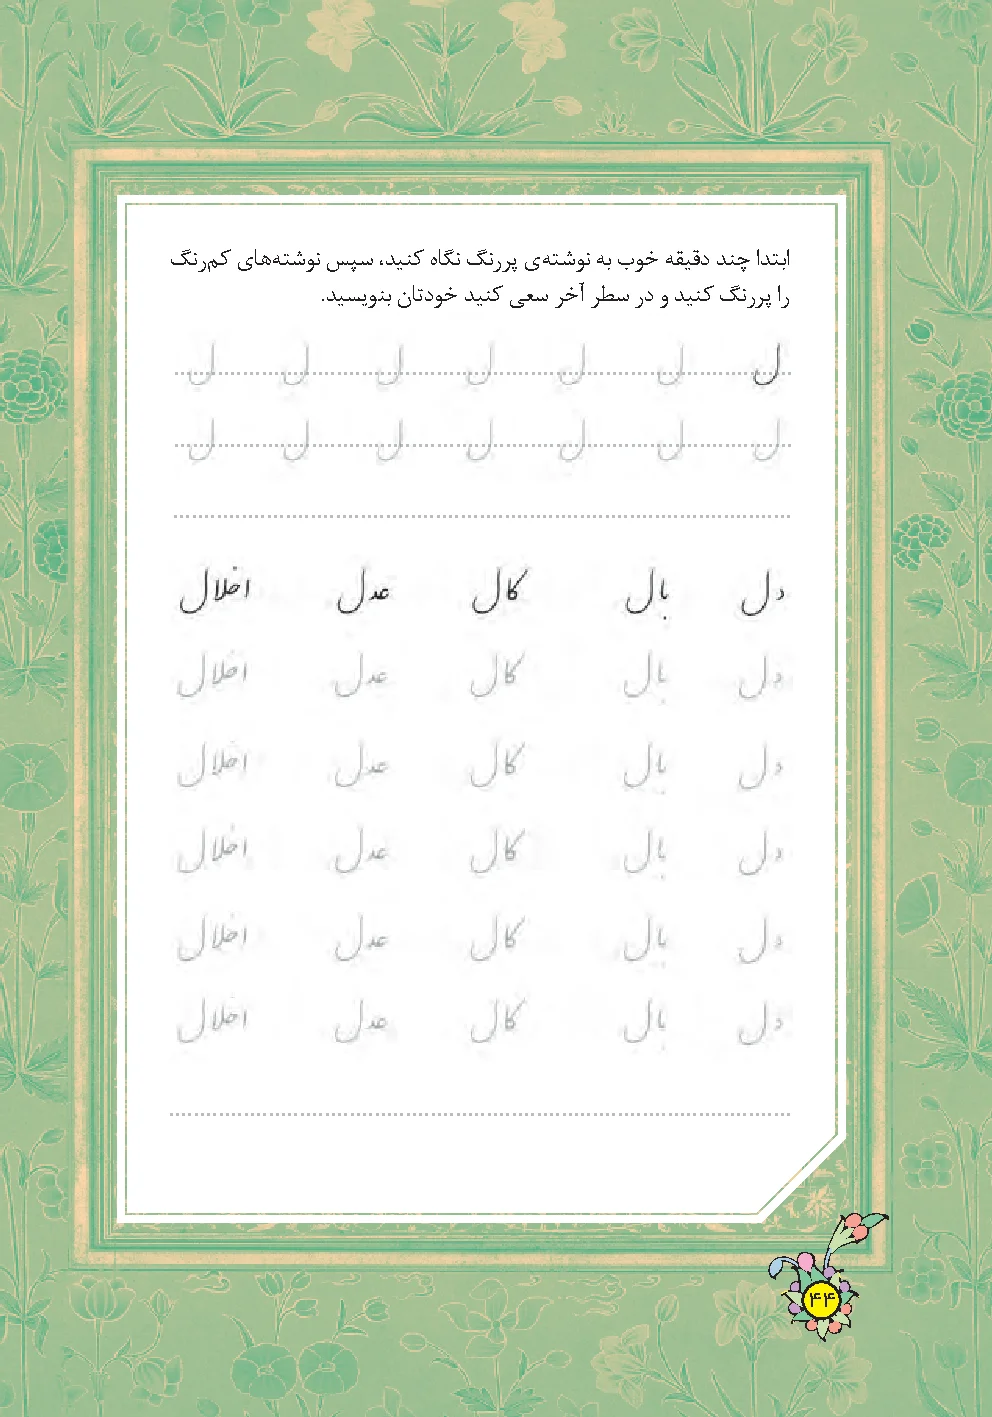 ابتدا چند دقیقه خوب به نوشته‌ی پررنگ نگاه کنید، سپس نوشته‌های کم‌رنگ
را پررنگ کنید و در سطر آخر سعی کنید خودتان بنویسید.
ل ل ل ل ل ل ل
ل ل ل ل ل ل ل
دل بال کال عدل اخلال
دل بال کال عدل اخلال
دل بال کال عدل اخلال
دل بال کال عدل اخلال
دل بال کال عدل اخلال
دل بال کال عدل اخلال
۴۴